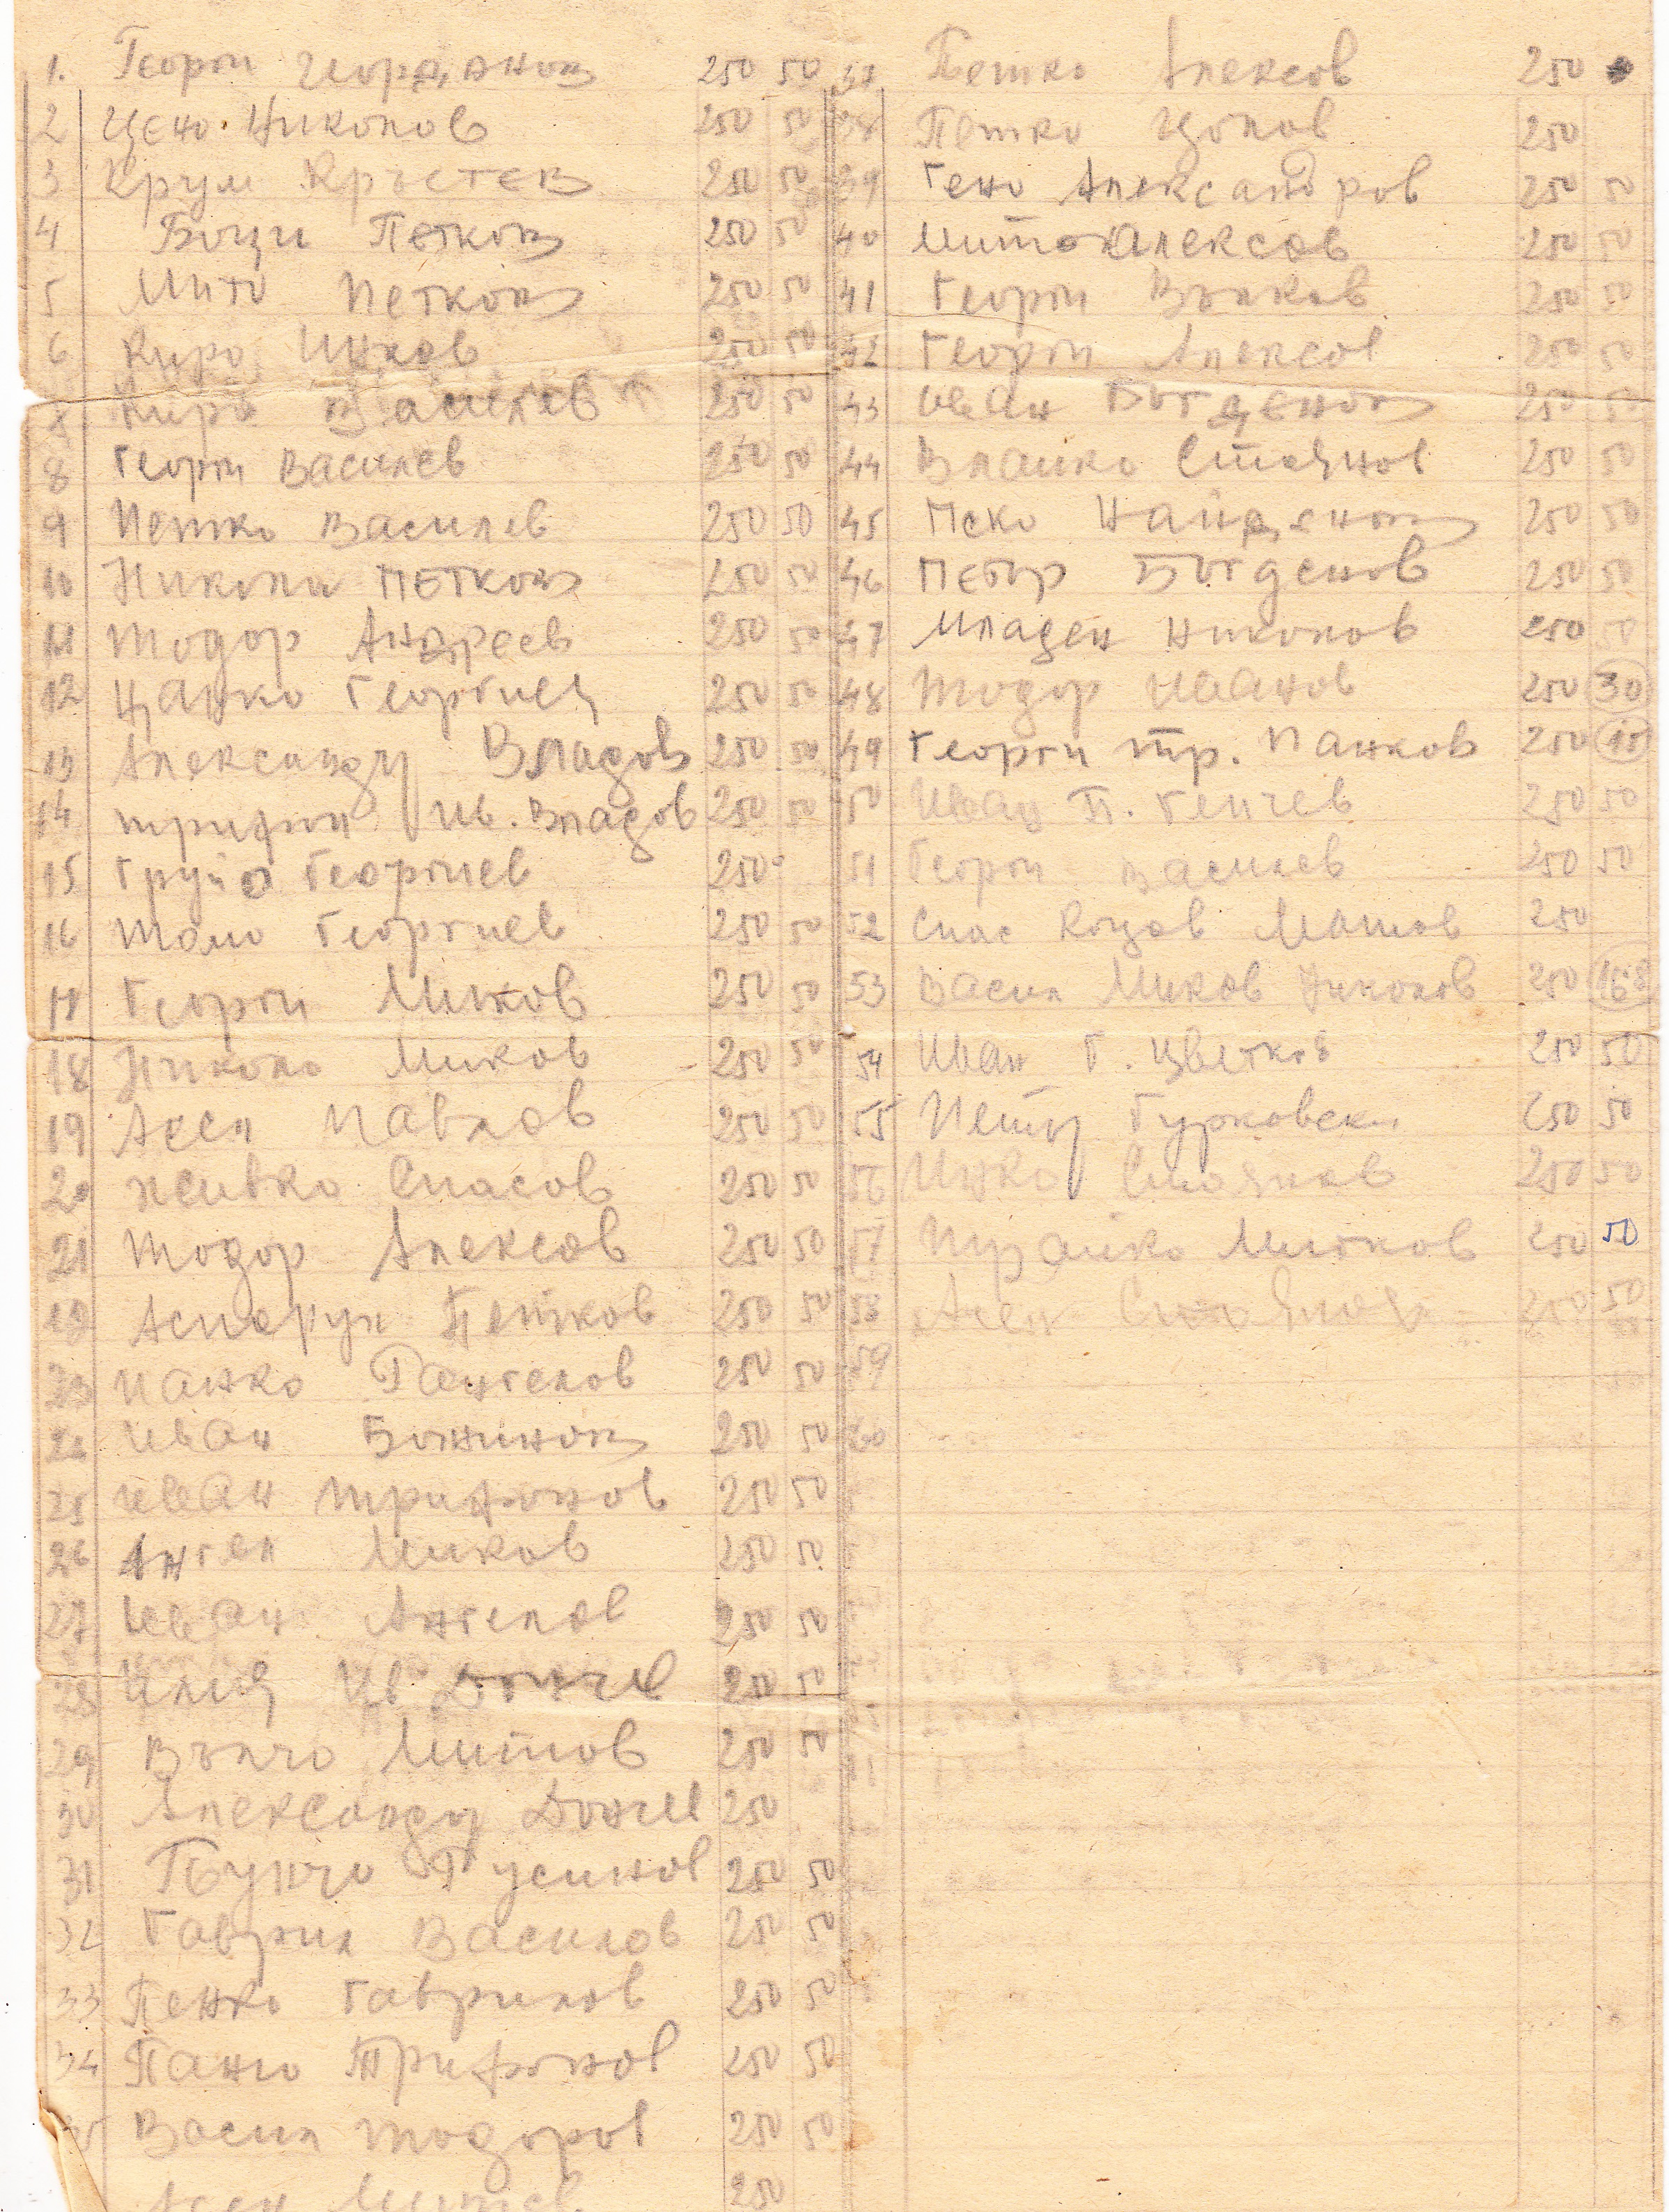 1. Георги Йорданов 250 50
2 Цено Николов 250 50
3 Крум Кръстев 250 50
4 Боци Петков 250 50
5 Мито Петков 250 50
6 Киро Цнков 250 50
Киро Василев 250 50
8 Георги Василев 250 50
9 Петко Василев 250 50
10 Николи Петков 250 50
11 Тодор Андреев 250 50
12 Цанко Георгиев 250 50
13 Александър Владов 250 50
14 Трифон Ив. Владов 250 50
15 Груйо Георгиев 250
16 Томо Георгиев 250 50
17 Георги Миков 250 50
18 Никола Миков 250 50
19 Асен Павлов 250 50
20 Живко Спасов 250 50
21 Тодор Алексов 250 50
Аспарух Петков 250 50
23 Панко Рангелов 250 50
Иван Божинов 250 50
25 Иван Трифонов 250 50
26 Ангел Миков 250 50
27 Иван Ангелов 250 50
28 Илия Цв. Дончев 250 50
29 Вълчо Митов 250 50
30 Александър Дончев 250
31 Бунчо Русинов 250 50
32 Гаврил Василов 250 50
33 Пенко Гаврилов 250 50
34 Панчо Трифонов 250 50
Васил Тодоров 250 50
Асен 250
Петко Алексов 250
38 Петко Цолов 250
39 Гено Александров 250 50
40 Мито Алексов 250 50
41 Георги Вълков 250 50
42 Георги Алексов 250 50
43 Иван Богденов 250 50
44 Влайко Стоянов 250 50
45 Пеко Найденов 250 50
46 Петър Богденов 250 50
47 Младен Николов 250 50
48 Тодор Иванов 250 30
49 Георги Тр. Панков 250 15
50 Иван П. Генчев 250 50
51 Георги Василев 250 50
52 Спас Коцов Матов 250
53 Васил Миков Николов 250 168
54 Иван Г. Цветков 250 50
55 Петър Гурковски 250 50
56 Стоянов 250 50
57 Митков 250 50
58 Асен 250 50
59
60